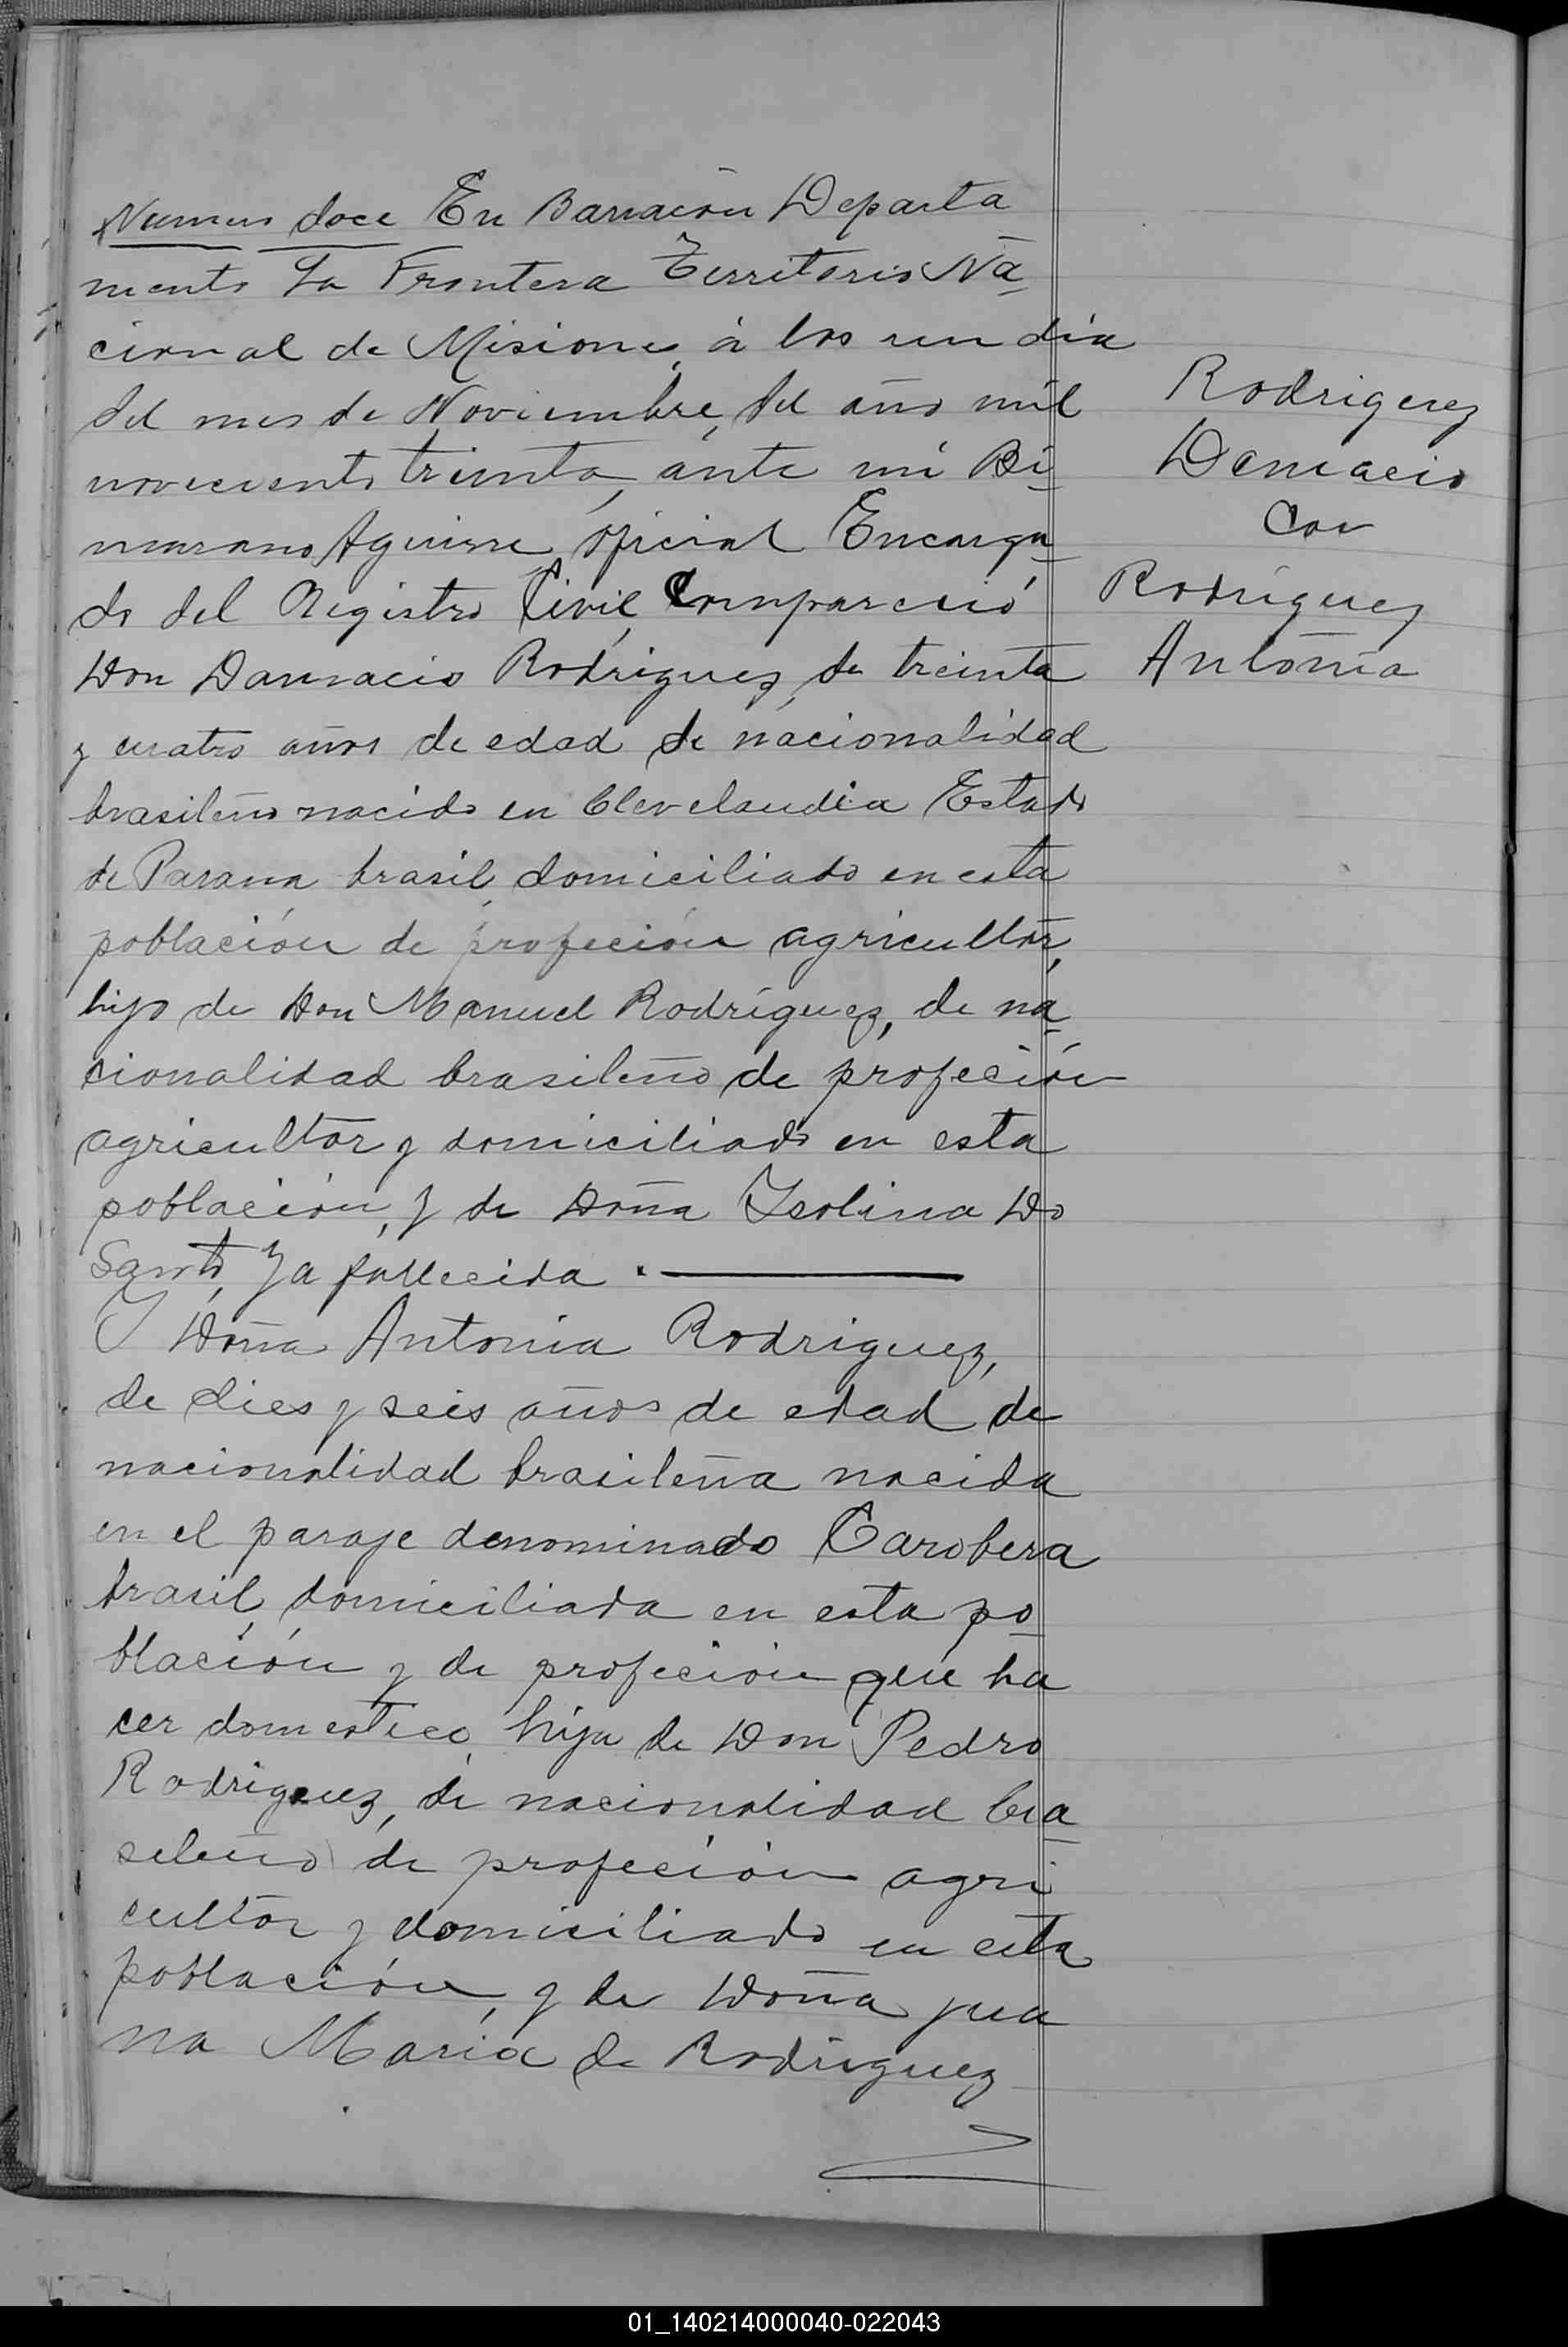 Numero doce En Barracón Departa
mento La Frontera Territorio Na
cional de Misiones, á los un dia
del mes de Noviembre, del año mil
novecientos treinta, ante mi
Aguirre, oficial Encarga
do del Registro Civil, Compareció
Don Damacio Rodriguez, de treinta
y cuatro años de edad de nacionalidad
brasileño nacido en Clevelandia Estado
de Parana brasil, domiciliado en esta
población de profeción agricultor,
hijo de Don Manuel Rodríguez, de na
cionalidad brasileño de profeción
agricultor y domiciliado en esta
población, y de Doña Isolina Do
Santo, Ya fallecida.
Y Doña Antonia Rodriguez,
de dies y seis años de edad de
nacionalidad brasileña nacida
en el paraje denominado Carobera
brasil, domiciliada en esta po
blación y de profeción que ha
cer domestico, hija de Don Pedro
Rodriguez, de nacionalidad bra
sileño de profeción agri
cultor y domiciliado en esta
población, y de Doña jua
na Maria de Rodriguez
Rodriguez
Damacio
Con
Rodriguez
Antonia
01_140214000040-022043